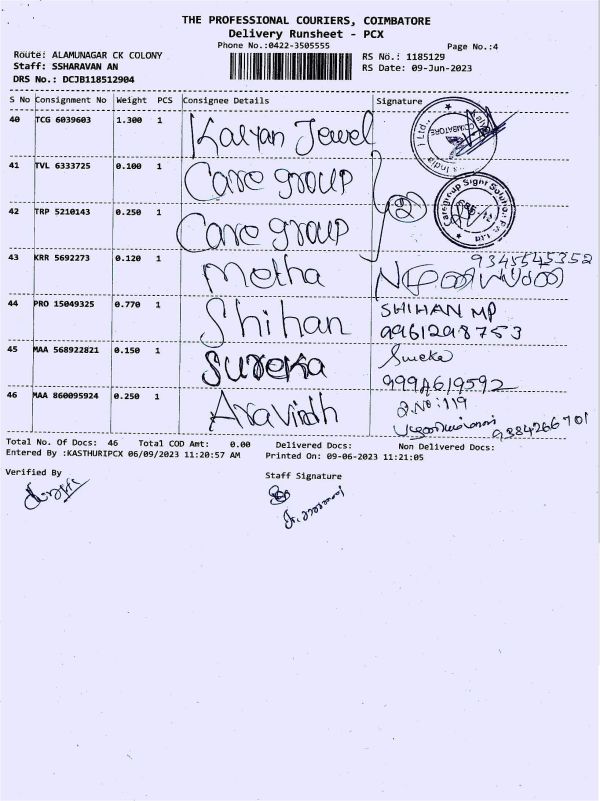 THE PROFESSIONAL COURIERS, COIMBATORE
Delivery Runsheet - PCX
Phone No.:0422-3505555 Page No.:4
Route: ALAMUNAGAR CK COLONY RS No.: 1185129
Staff: SSHARAVAN AN RS Date: 09-Jun-2023
DRS No.: DCJB118512904
S No Consignment No Weight PCS Consignee Details Signature
40 TCG 6039603 1.300 1 Kalyan Jewel
COIMBATORE
41 TVL 6333725 0.100 1 Care group
2
Caregroup Sight Solution Pvt. Ltd
42 TRP 5210143 0.250 1 Care group
43 KRR 5692273 0.120 1 Metha 9345545352
44 PRO 15049325 0.770 1 Shihan SHIHAN MP
9961298753
45 MAA 568922821 0.150 1 Sureka Sureka
9994619592
46 MAA 860095924 0.250 1 Aravindh D.No:119
9884266701
Total No. Of Docs: 46 Total COD Amt: 0.00 Delivered Docs: Non Delivered Docs:
Entered By :KASTHURIPCX 06/09/2023 11:20:57 AM Printed On: 09-06-2023 11:21:05
Verified By Staff Signature